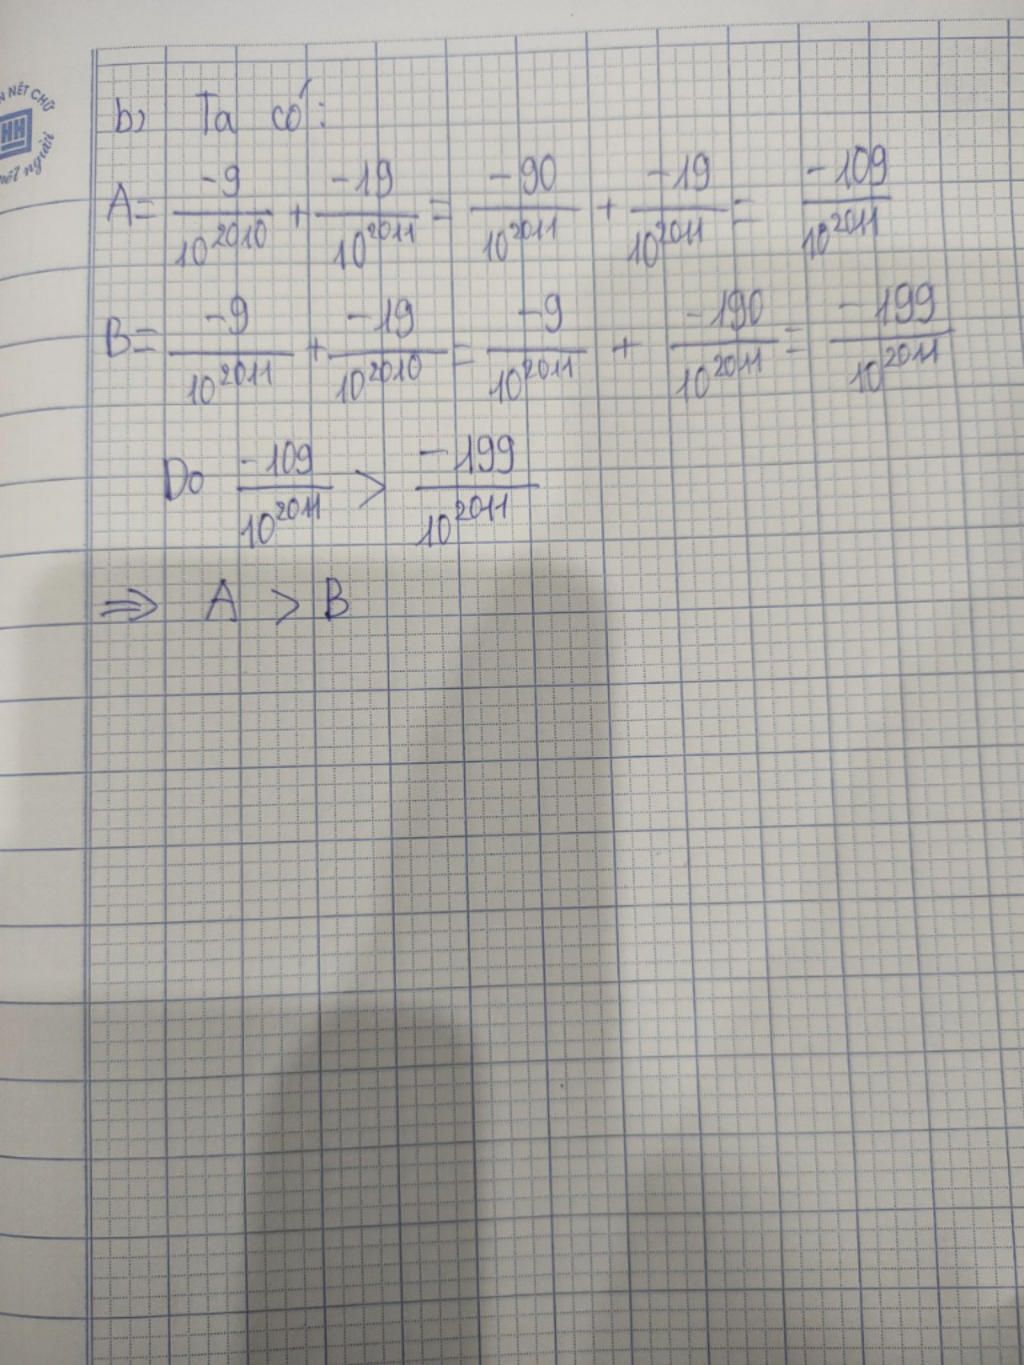 N NÉT CHỮ
HH
nết người
b) Ta có:
A = -9/10^2010 + -19/10^2011 = -90/10^2011 + -19/10^2011 = -109/10^2011
B = -9/10^2011 + -19/10^2010 = -9/10^2011 + -190/10^2011 = -199/10^2011
Do -109/10^2011 > -199/10^2011
⇒ A > B